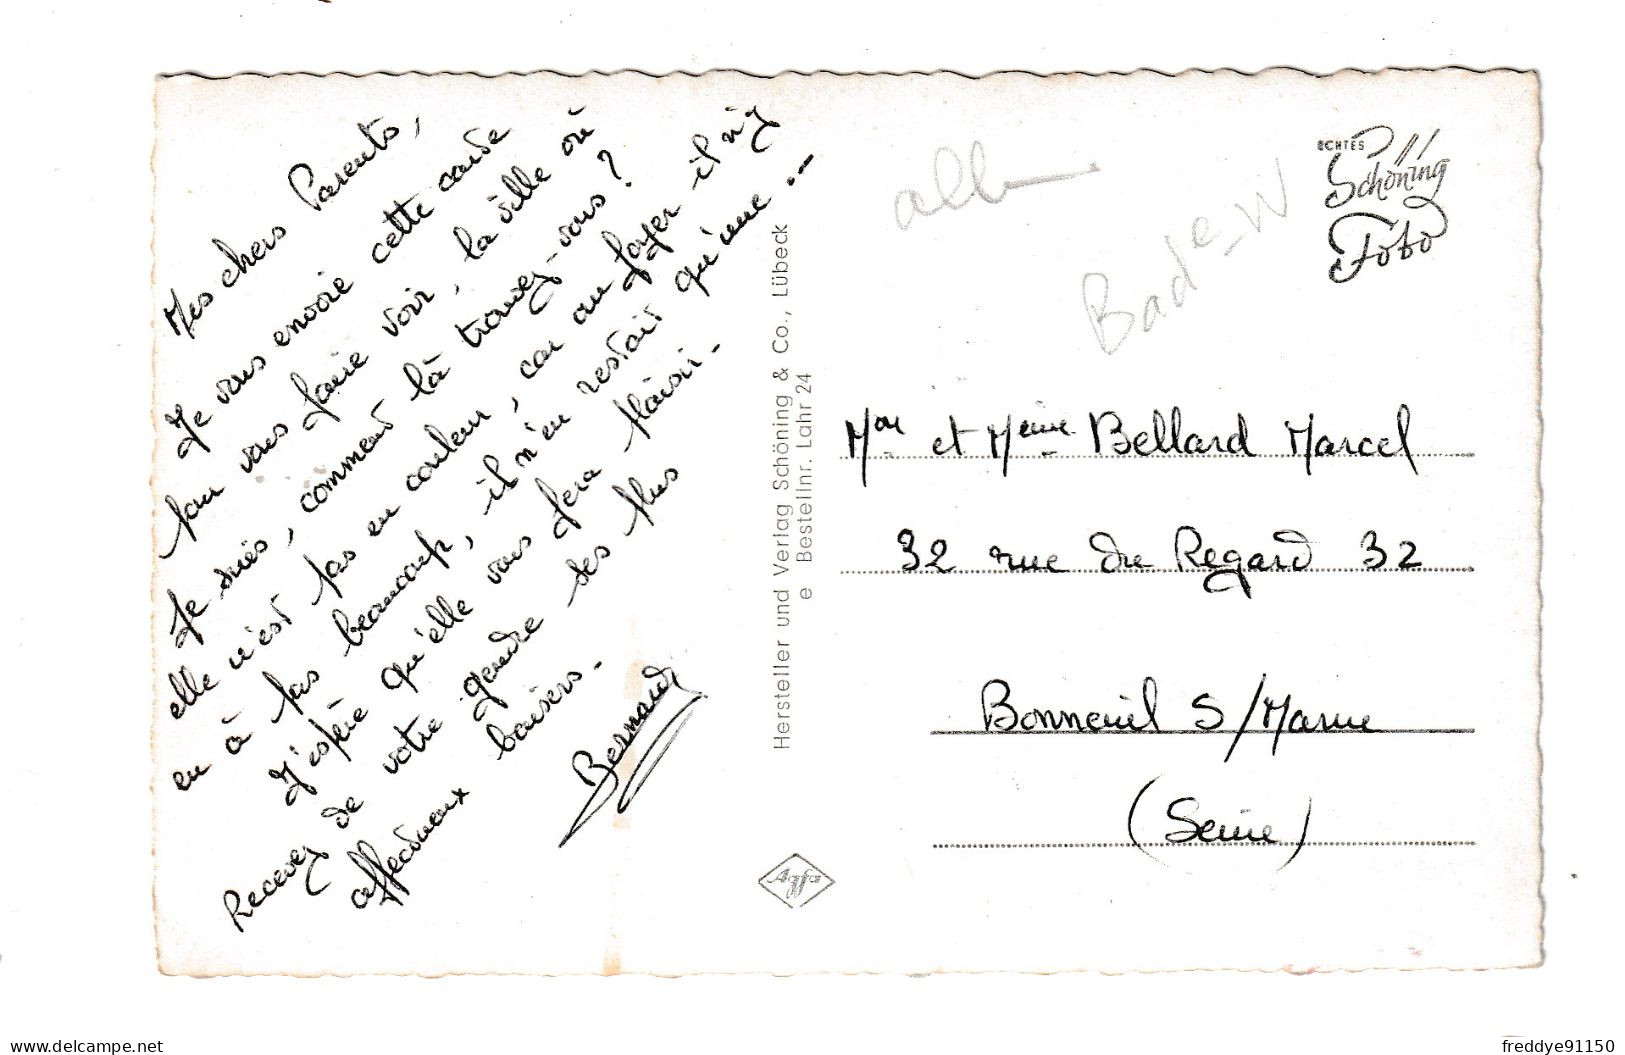 Mes chers Parents,
Je vous envoie cette carde
pour vous faire voir, la ville où
je suis, comment là trouvez-vous ?
elle n'est pas en couleur, car au foyer il n'y
en à pas beaucoup, il n'en restait qu'une . -
J'espère qu'elle vous fera plaisir -
Recevez de votre gendre ses plus
affectueux baisers -
Bernard
Hersteller und Verlag Schöning & Co., Lübeck
e Bestellnr. Lahr 24
Agfa
all
Bade-W
ECHTES
Schöning
Foto
Mr et Mme Bellard Marcel
32 rue du Regard 32
Bonneuil S/Marne
(Seine)
delcampe.net
freddye91150